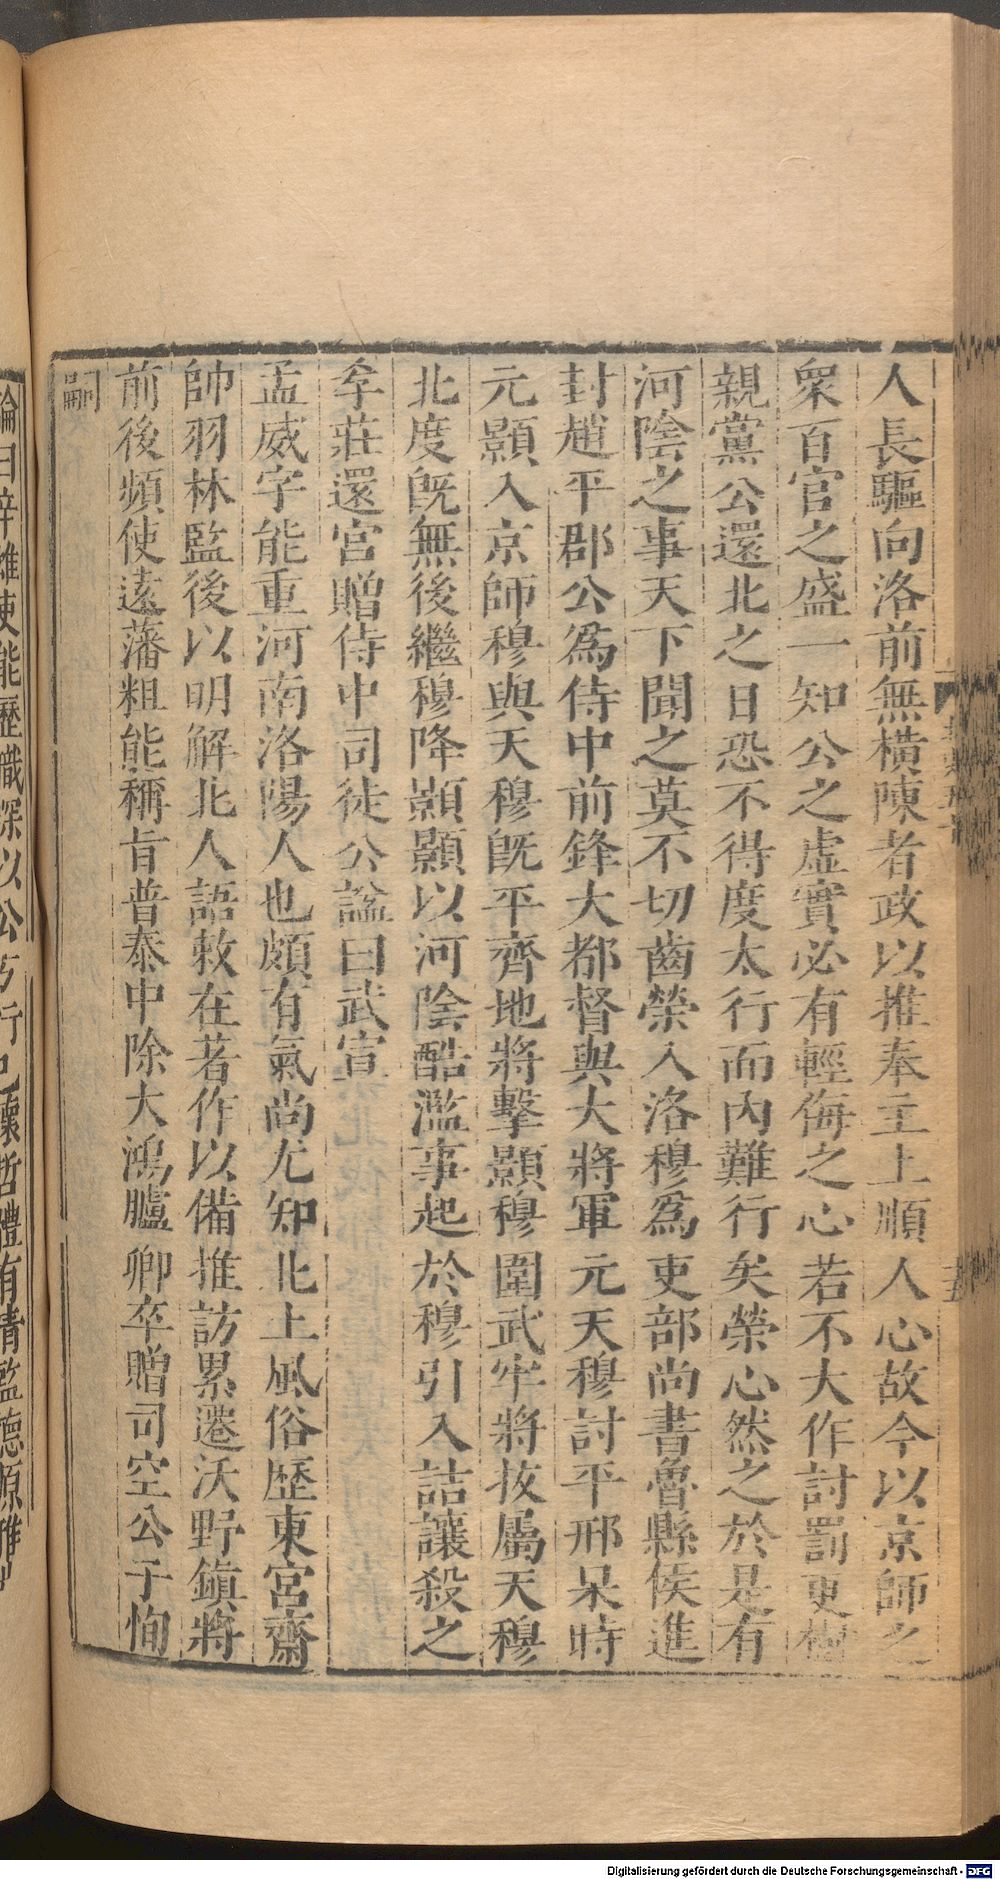 人長驅向洛前無橫陳者政以推奉主上順人心故今以京師之
衆百官之盛一知公之虛實必有輕侮之心若不大作討罰更樹
親黨公還北之日恐不得度太行而內難行矣榮心然之於是有
河陰之事天下聞之莫不切齒榮入洛穆爲吏部尚書魯縣侯進
封趙平郡公爲侍中前鋒大都督與大將軍元天穆討平邢杲時
元顥入京師穆與天穆旣平齊地將擊顥穆圍武牢將拔屬天穆
北度旣無後繼穆降顥顥以河陰酷濫事起於穆引入詰讓殺之
孝莊還宮贈侍中司徒公諡曰武宣
孟威字能重河南洛陽人也頗有氣尚尤知北土風俗歷東宮齋
帥羽林監後以明解北人語敕在著作以備推訪累遷沃野鎮將
前後頻使遠藩粗能稱旨普泰中除大鴻臚卿卒贈司空公子恂
嗣
論曰辛雄吏能歷職深以公
行己
哲體有清鑑德源雅
Digitalisierung gefördert durch die Deutsche Forschungsgemeinschaft - DFG